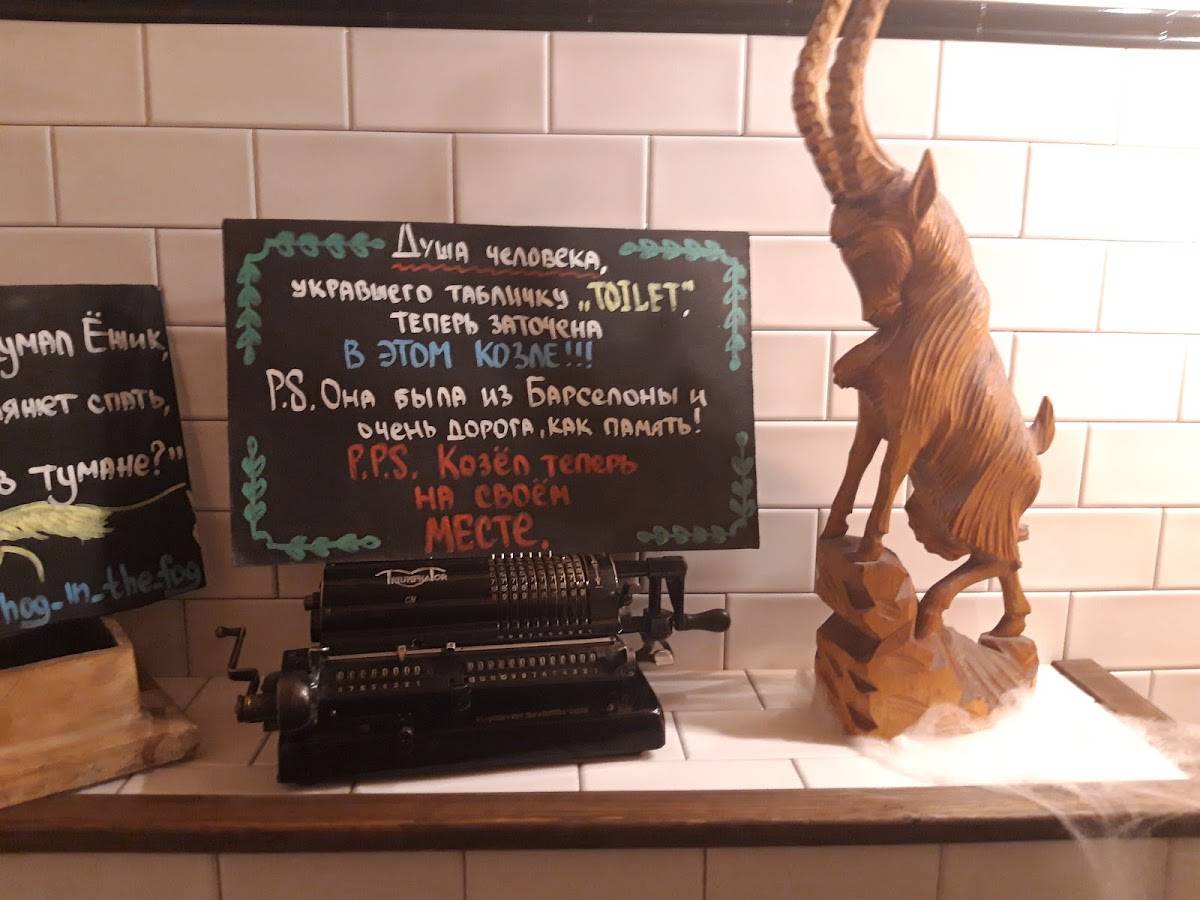 умал Ёжик,
янет спать,
в тумане?"
hog_in_the_fog
Душа человека,
укравшего табличку „TOILET",
теперь заточена
в этом козле!!!
P.S. Она была из Барселоны и
очень дорога, как память!
P.P.S. Козёл теперь
на своём
месте.
TRIUMPHATOR
CN